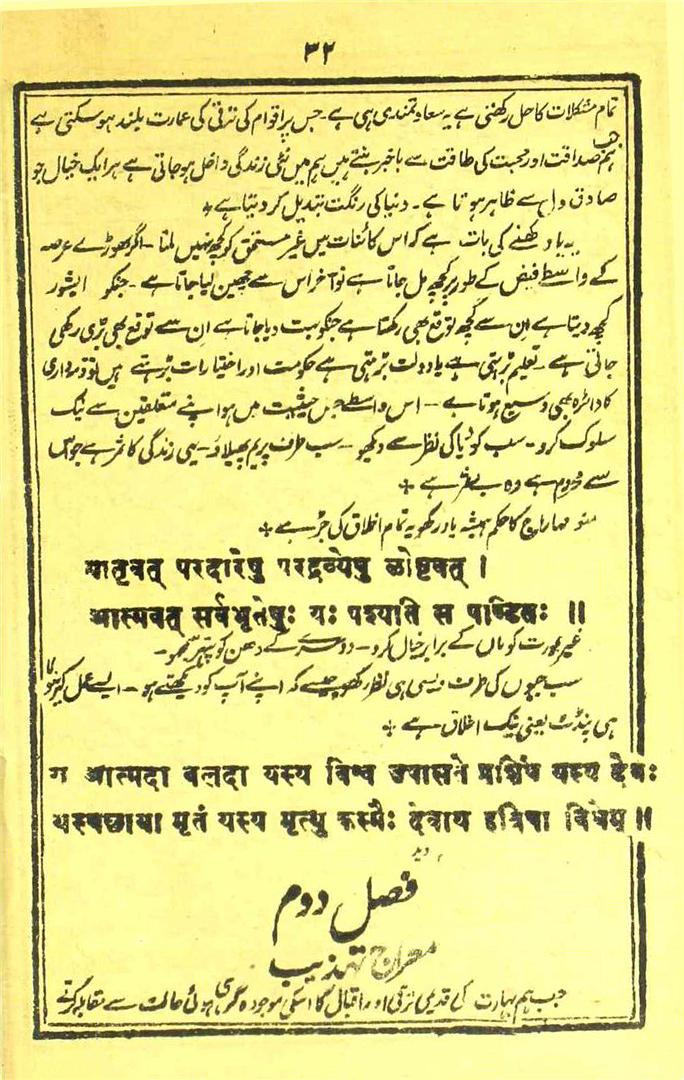 ۳۲
تمام مشکلات کا حل رکھتی ہے یہ سعادتمندی ہی ہے - جس پر اقوام کی ترقی کی عمارت بلند ہو سکتی ہے
جب ہم صداقت اور محبت کی طاقت سے باخبر بنتے ہیں ہم میں نئی زندگی داخل ہو جاتی ہے ہر ایک خیال جو
صادق دل سے ظاہر ہوتا ہے - دنیا کی رنگت تبدیل کر دیتا ہے +
یہ یاد رکھنے کی بات ہے کہ اس کائنات میں غیر مستحق کو کچھ نہیں ملتا - اگر تھوڑے عرصہ
کے واسطے فیض کے طور پر کچھ مل جاتا ہے تو آخر اس سے چھین لیا جاتا ہے - جنکو ایشور
کچھ دیتا ہے ان سے کچھ توقع بھی رکھتا ہے جنکو بہت دیا جاتا ہے ان سے توقع بھی بڑی رکھی
جاتی ہے - تعلیم بڑہتی ہے یا دولت بڑہتی ہے حکومت اور اختیارات بڑہتے ہیں تو ذمہ داری
کا دائرہ بھی وسیع ہوتا ہے - اس واسطے جس حیثیت میں ہو اپنے متعلقین سے نیک
سلوک کرو - سب کو دیا کی نظر سے دیکھو - سب طرف پریم پھیلاؤ - یہی زندگی کا ثمر ہے جو اس
سے محروم ہے وہ بے ثمر ہے +
منو مہاراج کا حکم ہمیشہ یاد رکھو یہ تمام اخلاق کی جڑ ہے +
मातृवत् परदारेषु परद्रव्येषु लोष्टवत् ।
आत्मवत् सर्वभूतेषुः यः पश्याति स पाण्डितः ॥
غیر عورت کو ماں کے برابر خیال کرو - دوسرے کے دھن کو پتھر سمجھو -
سب جیوں کی طرف ویسی ہی نظر رکھو جیسے کہ اپنے آپ کو دیکھتے ہو - ایسے عمل کرنیوالا
ہی پنڈت یعنی نیک اخلاق ہے +
य आत्मदा बलदा यस्य विश्व उपासते प्रशिषं यस्य देवः
यस्यच्छाया मृतं यस्य मृत्यु कस्मैः देवाय हविषा विधेम् ॥
وید
فصل دوم
معراج تہذیب
جب ہم بہارت کی قدیمی ترقی اور اقبال کا اسکی موجودہ گری ہوئی حالت سے مقابلہ کرتے